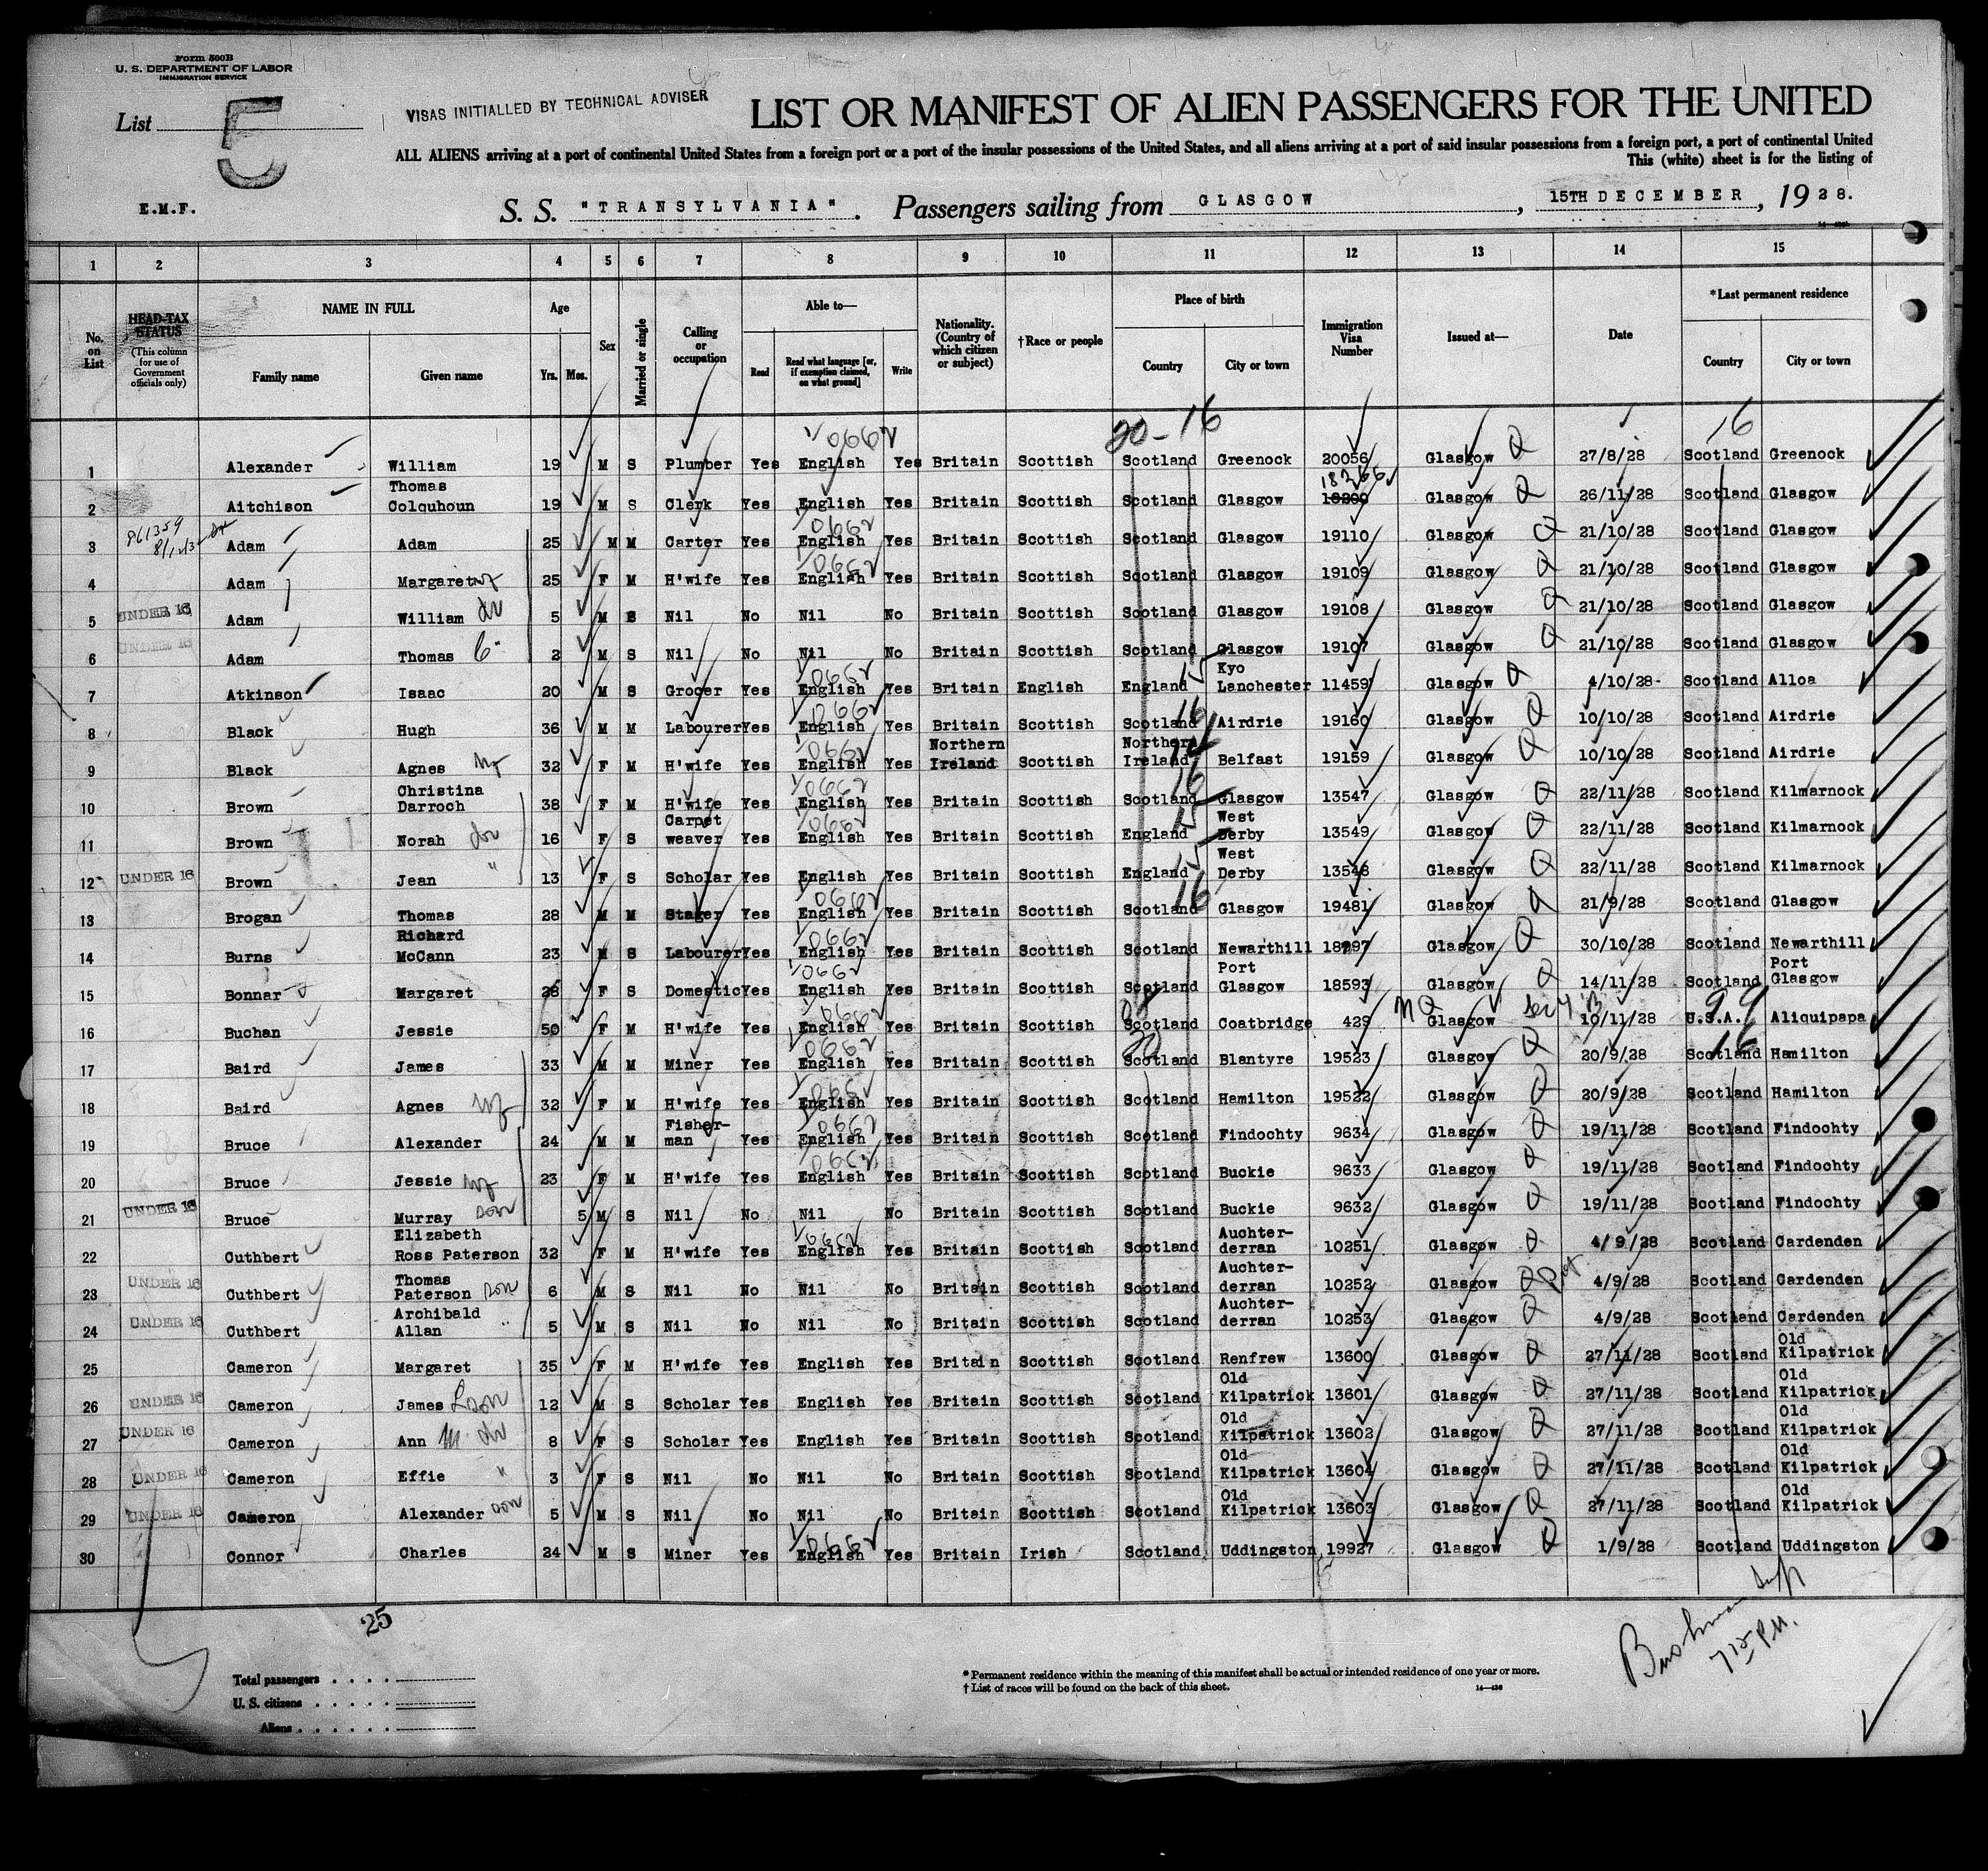 Form 500B
U. S. DEPARTMENT OF LABOR
IMMIGRATION SERVICE
List 5
VISAS INITIALLED BY TECHNICAL ADVISER
LIST OR MANIFEST OF ALIEN PASSENGERS FOR THE UNITED
ALL ALIENS arriving at a port of continental United States from a foreign port or a port of the insular possessions of the United States, and all aliens arriving at a port of said insular possessions from a foreign port, a port of continental United
This (white) sheet is for the listing of
E.M.F.
S. S. "TRANSYLVANIA". Passengers sailing from GLASGOW, 15TH DECEMBER, 1928.
1 2 3 4 5 6 7 8 9 10 11 12 13 14 15
No. on List
HEAD-TAX STATUS
(This column for use of Government officials only)
NAME IN FULL
Family name Given name
Age
Yrs. Mos.
Sex
Married or single
Calling or occupation
Able to—
Read Read what language [or, if exemption claimed, on what ground] Write
Nationality. (Country of which citizen or subject)
†Race or people
Place of birth
Country City or town
Immigration Visa Number
Issued at—
Date
*Last permanent residence
Country City or town
20-16 16
1 Alexander William 19 M S Plumber Yes English Yes Britain Scottish Scotland Greenock 20056 Glasgow 27/8/28 Scotland Greenock
2 Aitchison Thomas Colquhoun 19 M S Clerk Yes English Yes Britain Scottish Scotland Glasgow 18266 Glasgow 26/11/28 Scotland Glasgow
3 Adam Adam 25 M M Carter Yes English Yes Britain Scottish Scotland Glasgow 19110 Glasgow 21/10/28 Scotland Glasgow
4 Adam Margaret wf 25 F M H'wife Yes English Yes Britain Scottish Scotland Glasgow 19109 Glasgow 21/10/28 Scotland Glasgow
5 UNDER 16 Adam William 5 M S Nil No Nil No Britain Scottish Scotland Glasgow 19108 Glasgow 21/10/28 Scotland Glasgow
6 UNDER 16 Adam Thomas 2 M S Nil No Nil No Britain Scottish Scotland Glasgow 19107 Glasgow 21/10/28 Scotland Glasgow
7 Atkinson Isaac 20 M S Grocer Yes English Yes Britain English England Kyo Lanchester 11459 Glasgow 4/10/28- Scotland Alloa
8 Black Hugh 36 M M Labourer Yes English Yes Britain Scottish Scotland Airdrie 19160 Glasgow 10/10/28 Scotland Airdrie
9 Black Agnes wf 32 F M H'wife Yes English Yes Northern Ireland Scottish Northern Ireland Belfast 19159 Glasgow 10/10/28 Scotland Airdrie
10 Brown Christina Darroch 38 F M H'wife Yes English Yes Britain Scottish Scotland Glasgow 13547 Glasgow 22/11/28 Scotland Kilmarnock
11 Brown Norah 16 F S Carpet weaver Yes English Yes Britain Scottish England West Derby 13549 Glasgow 22/11/28 Scotland Kilmarnock
12 UNDER 16 Brown Jean " 13 F S Scholar Yes English Yes Britain Scottish England West Derby 13548 Glasgow 22/11/28 Scotland Kilmarnock
13 Brogan Thomas 28 M M Stager Yes English Yes Britain Scottish Scotland Glasgow 19481 Glasgow 21/9/28 Scotland Glasgow
14 Burns Richard McCann 23 M S Labourer Yes English Yes Britain Scottish Scotland Newarthill 18297 Glasgow 30/10/28 Scotland Newarthill
15 Bonnar Margaret 28 F S Domestic Yes English Yes Britain Scottish Scotland Port Glasgow 18593 Glasgow 14/11/28 Scotland Port Glasgow
16 Buchan Jessie 50 F M H'wife Yes English Yes Britain Scottish Scotland Coatbridge 429 NQ Glasgow 10/11/28 U.S.A. Aliquipapa
17 Baird James 33 M M Miner Yes English Yes Britain Scottish Scotland Blantyre 19523 Glasgow 20/9/28 Scotland Hamilton
18 Baird Agnes wf 32 F M H'wife Yes English Yes Britain Scottish Scotland Hamilton 19522 Glasgow 20/9/28 Scotland Hamilton
19 Bruce Alexander 24 M M Fisher-man Yes English Yes Britain Scottish Scotland Findochty 9634 Glasgow 19/11/28 Scotland Findochty
20 Bruce Jessie wf 23 F M H'wife Yes English Yes Britain Scottish Scotland Buckie 9633 Glasgow 19/11/28 Scotland Findochty
21 UNDER 16 Bruce Murray son 5 M S Nil No Nil No Britain Scottish Scotland Buckie 9632 Glasgow 19/11/28 Scotland Findochty
22 Cuthbert Elizabeth Ross Paterson 32 F M H'wife Yes English Yes Britain Scottish Scotland Auchter-derran 10251 Glasgow 4/9/28 Scotland Cardenden
23 UNDER 16 Cuthbert Thomas Paterson son 6 M S Nil No Nil No Britain Scottish Scotland Auchter-derran 10252 Glasgow 4/9/28 Scotland Cardenden
24 UNDER 16 Cuthbert Archibald Allan " 5 M S Nil No Nil No Britain Scottish Scotland Auchter-derran 10253 Glasgow 4/9/28 Scotland Cardenden
25 Cameron Margaret 35 F M H'wife Yes English Yes Britain Scottish Scotland Renfrew 13600 Glasgow 27/11/28 Scotland Old Kilpatrick
26 UNDER 16 Cameron James son 12 M S Scholar Yes English Yes Britain Scottish Scotland Old Kilpatrick 13601 Glasgow 27/11/28 Scotland Old Kilpatrick
27 UNDER 16 Cameron Ann M 8 F S Scholar Yes English Yes Britain Scottish Scotland Old Kilpatrick 13602 Glasgow 27/11/28 Scotland Old Kilpatrick
28 UNDER 16 Cameron Effie " 3 F S Nil No Nil No Britain Scottish Scotland Old Kilpatrick 13604 Glasgow 27/11/28 Scotland Old Kilpatrick
29 UNDER 16 Cameron Alexander son 5 M S Nil No Nil No Britain Scottish Scotland Old Kilpatrick 13603 Glasgow 27/11/28 Scotland Old Kilpatrick
30 Connor Charles 24 M S Miner Yes English Yes Britain Irish Scotland Uddingston 19927 Glasgow 1/9/28 Scotland Uddingston
25
Total passengers
U. S. citizens
Aliens
* Permanent residence within the meaning of this manifest shall be actual or intended residence of one year or more.
† List of races will be found on the back of this sheet.
Bushman
715 P.M.